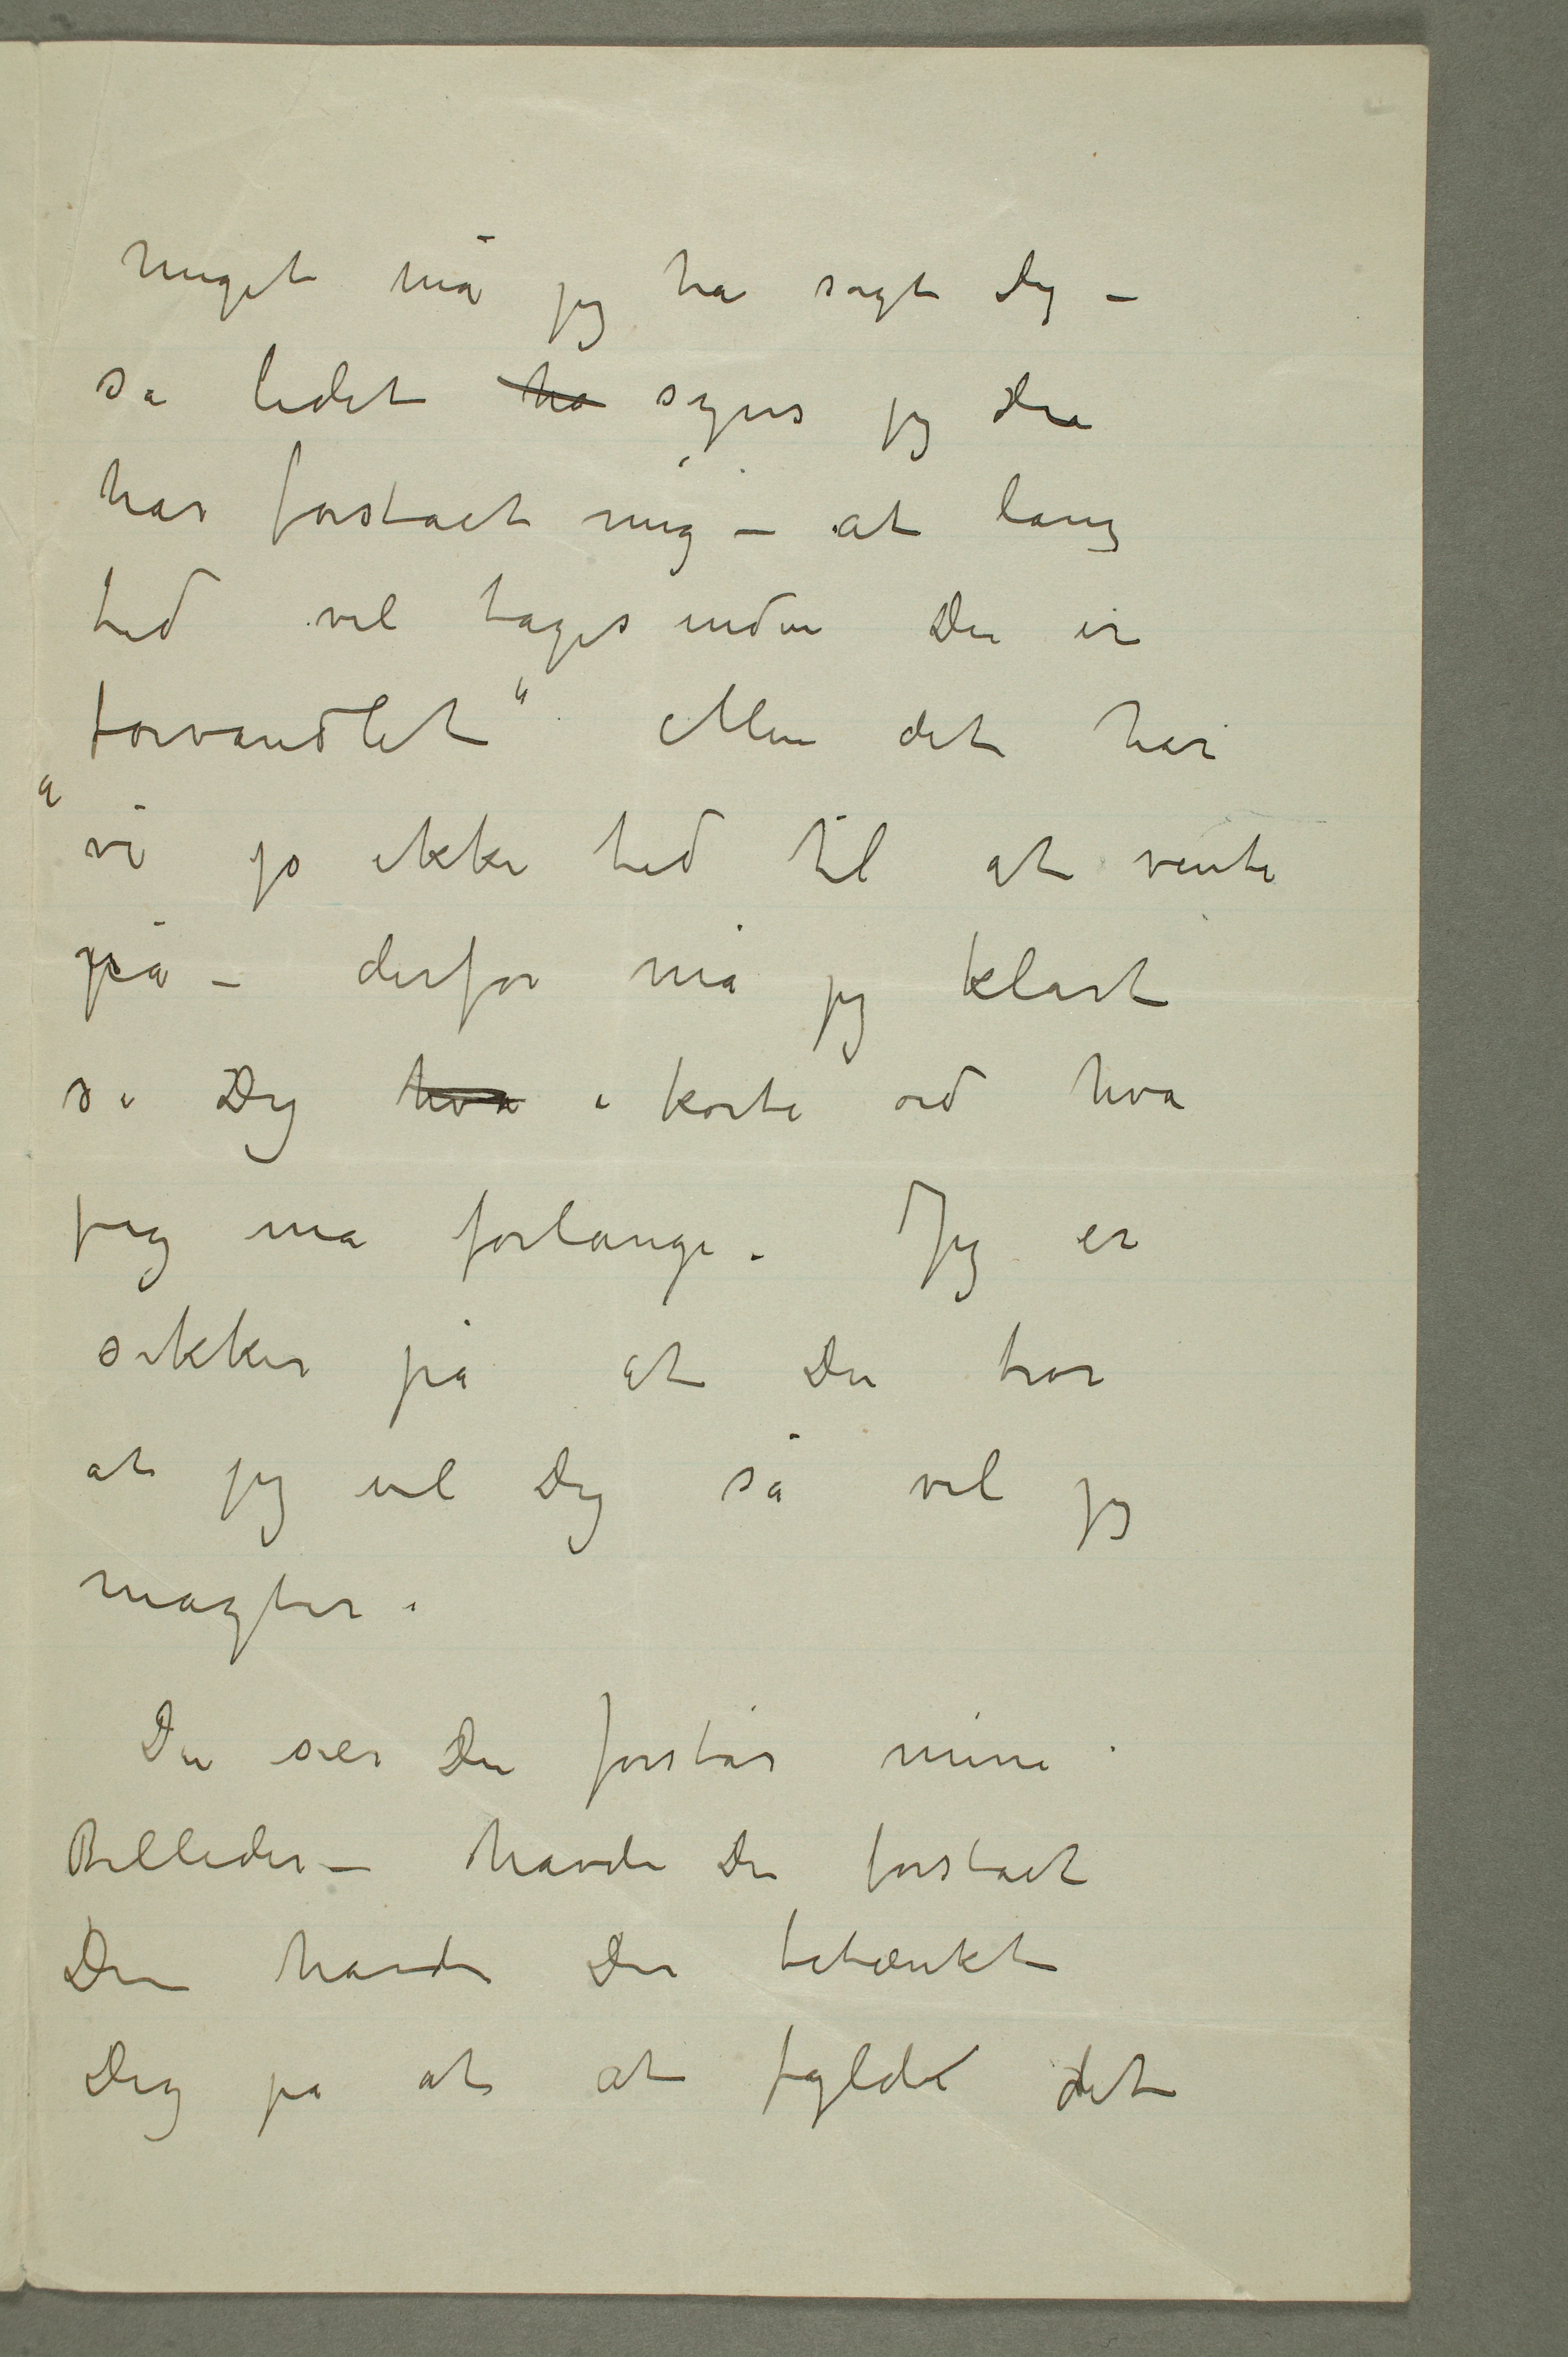 meget må jeg ha sagt Dig –
så lidet ha synes jeg Du
har forstået mig – at lang
tid vil tages inden Du er
„forvandlet“ Men det har
vi jo ikke tid til at vente
på – derfor må jeg klart
si Dig hva i korte ord hva
jeg må forlange. Jeg er
sikker på at Du tror
at jeg vil Dig så vel jeg
magter.
Du sier Du forstår mine
Billeder – havde Du forstået
Dem havde Du betænkt
Dig på at at fylde det